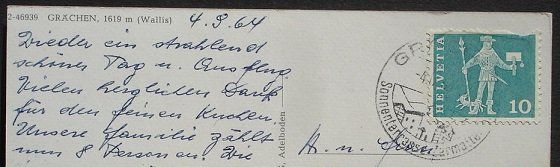 2-46939 GRÄCHEN, 1619 m (Wallis)
4.9.64
Wieder ein strahlend
schöner Tag u. Ausflug.
Vielen herzlichen Dank
für den feinen Kuchen.
Unsere Familie zählt
nun 8 Personen. Die
Adelboden
GR
Sonnen
HELVETIA
10
H. u.